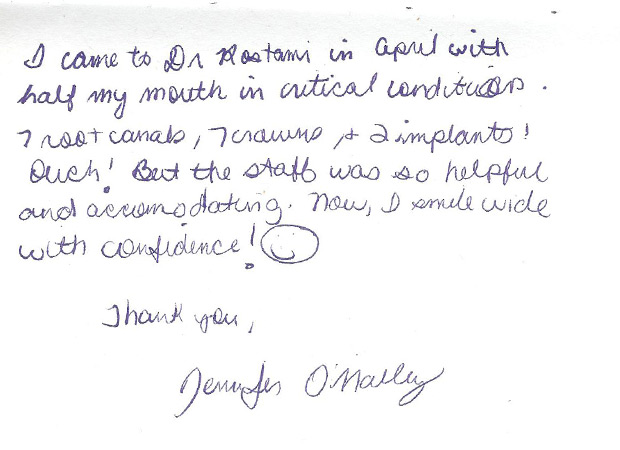 I came to Dr Rostami in April with
half my mouth in critical conditions.
7 root canals, 7 crowns, + 2 implants!
Ouch! But the staff was so helpful
and accomodating. Now, I smile wide
with confidence!
Thank you,
Jennifer O'Malley